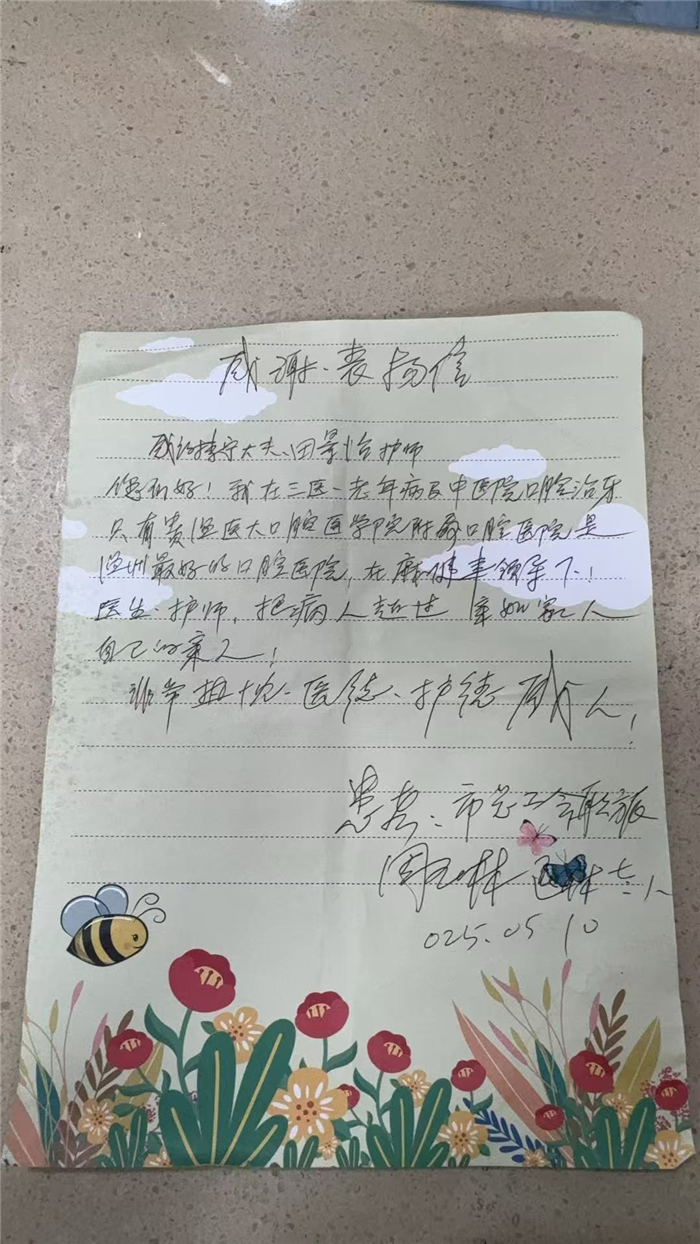 感谢、表扬信
感谢李宁大夫、田景怡护师
您们好！我在三医、老年病及中医院口腔治牙
只有贵温医大口腔医学院附属口腔医院是
温州最好的口腔医院，在麻健丰领导下！
医生、护师，把病人 家人
自己的亲人！
非常 医德、护德感人！
患者：市总工会
周 林
025.05 10